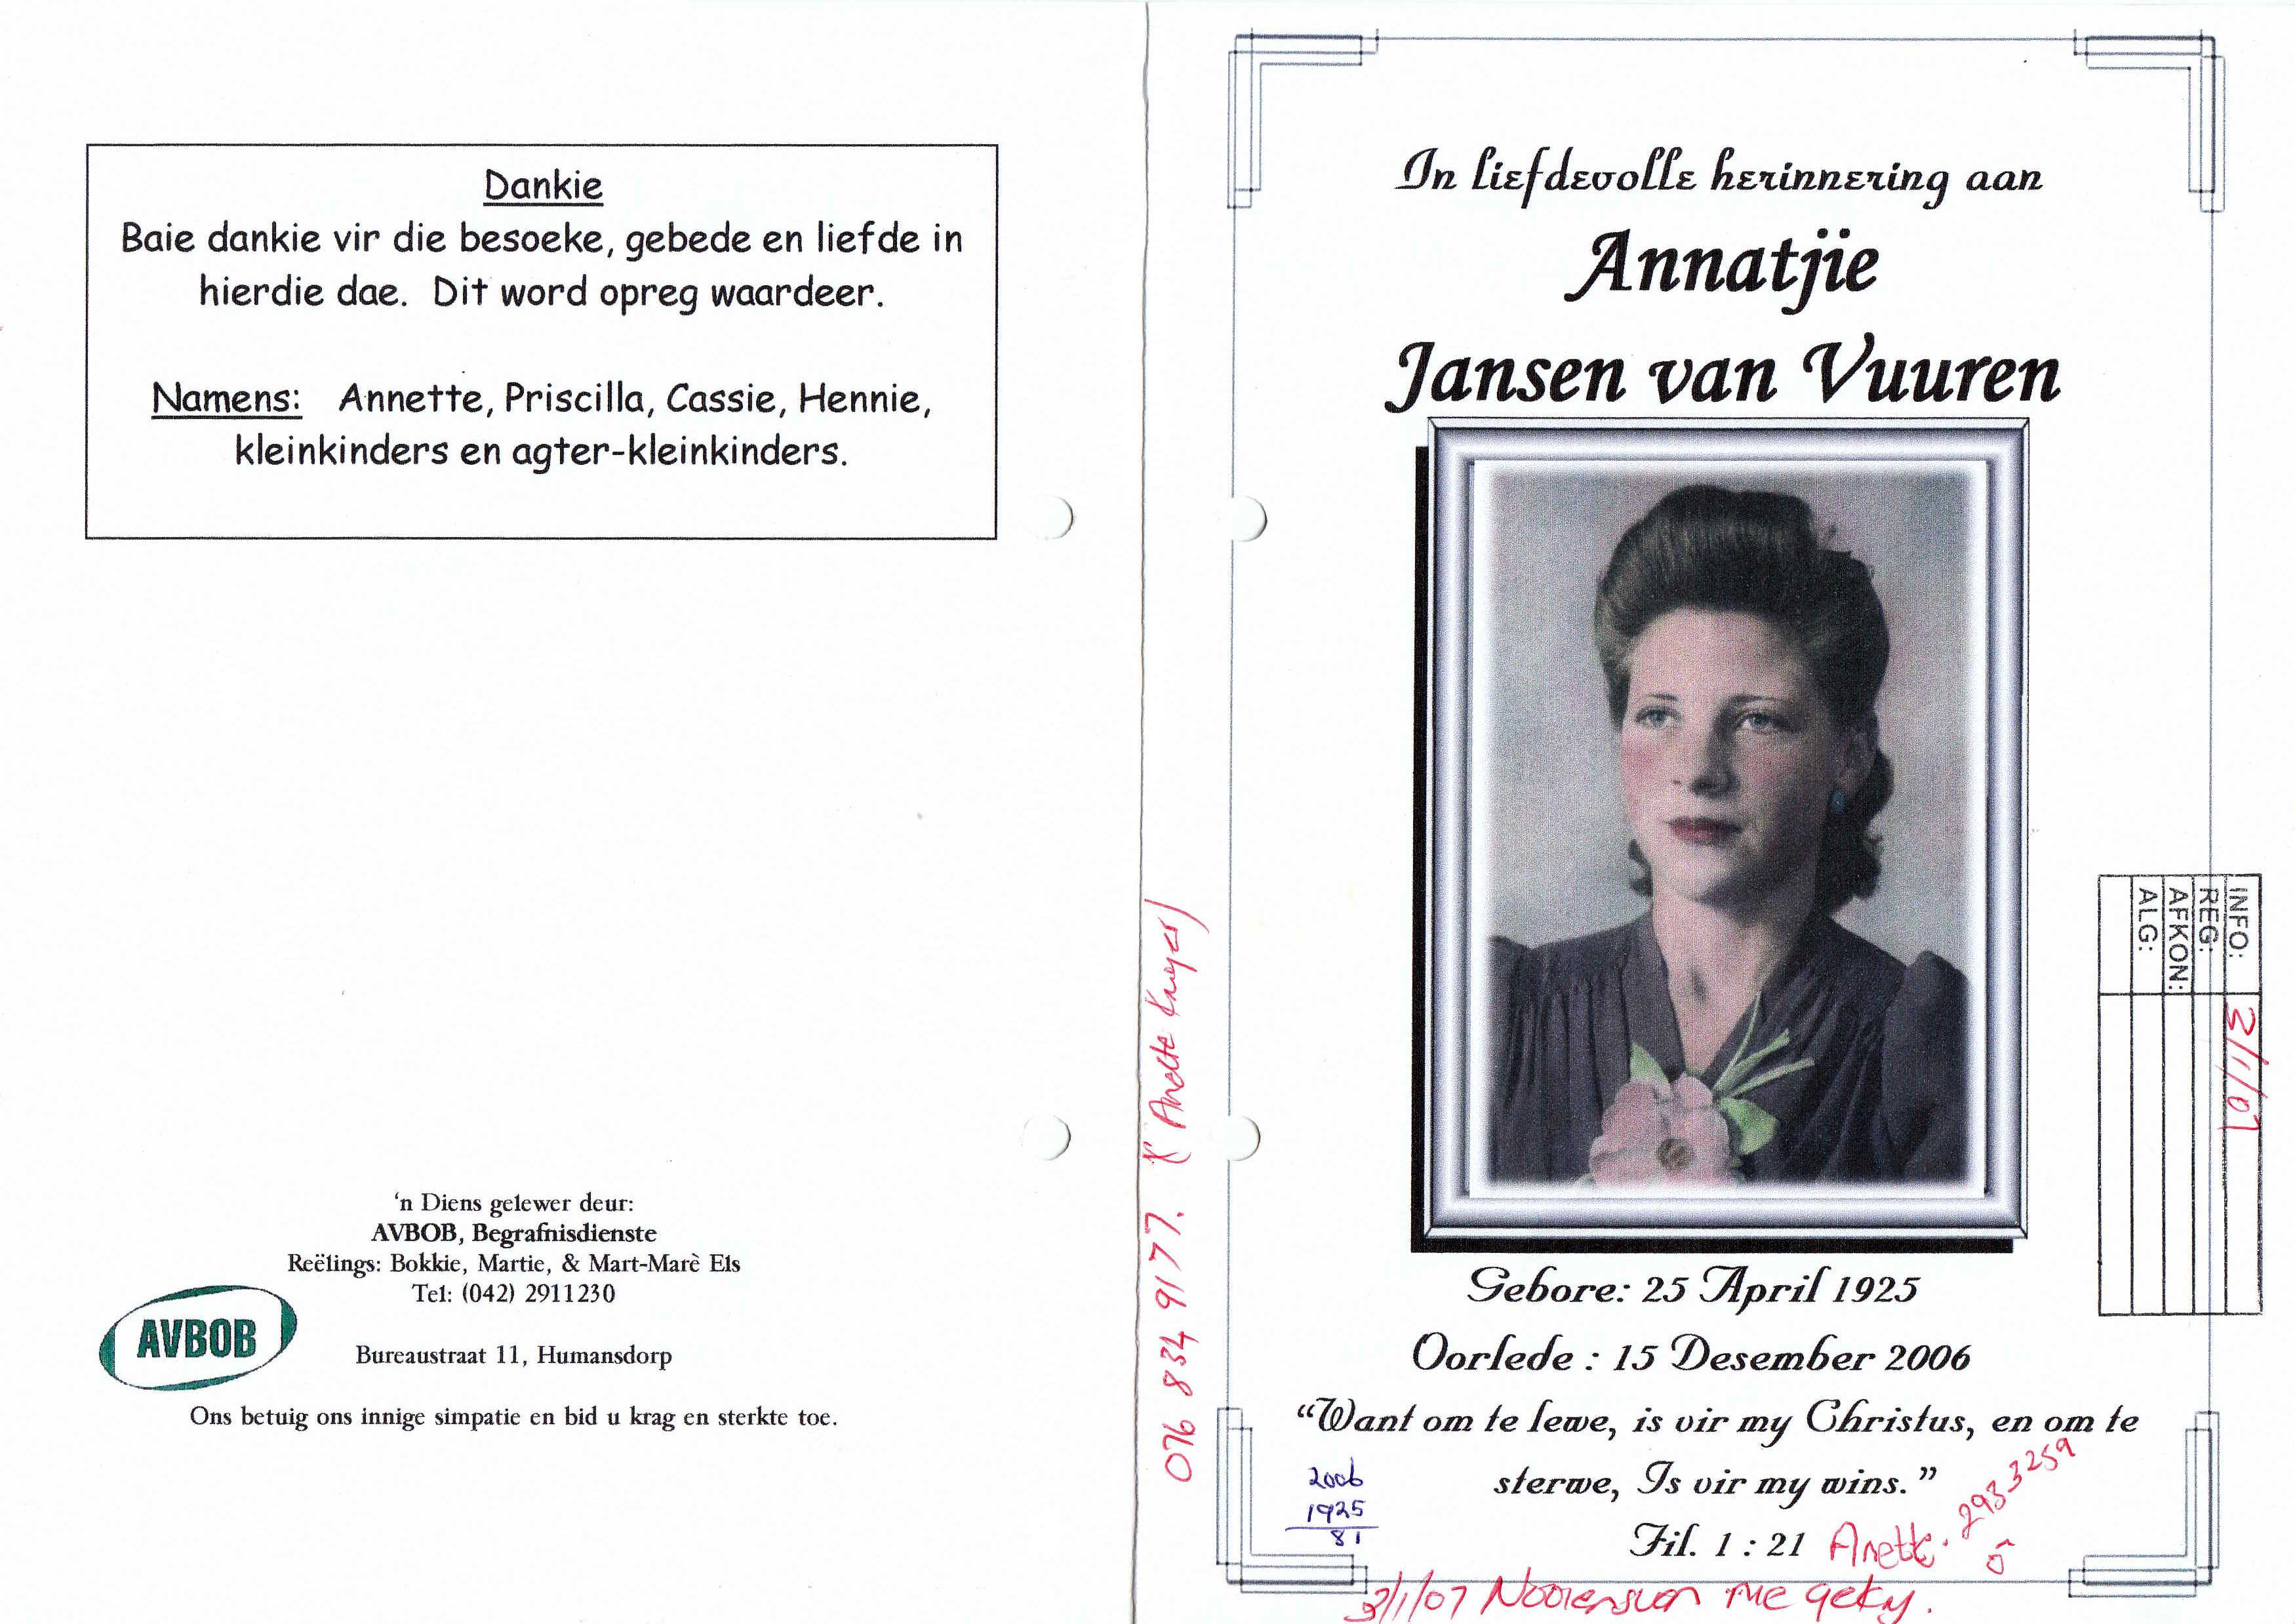 Dankie
Baie dankie vir die besoeke, gebede en liefde in
hierdie dae. Dit word opreg waardeer.
Namens: Annette, Priscilla, Cassie, Hennie,
kleinkinders en agter-kleinkinders.
'n Diens gelewer deur:
AVBOB, Begrafnisdienste
Reëlings: Bokkie, Martie, & Mart-Marè Els
Tel: (042) 2911230
AVBOB
Bureaustraat 11, Humansdorp
Ons betuig ons innige simpatie en bid u krag en sterkte toe.
076 834 9177.
In liefdevolle herinnering aan
Annatjie
Jansen van Vuuren
INFO: 3/1/07
REG:
AFKON:
ALG:
Gebore: 25 April 1925
Oorlede : 15 Desember 2006
“Want om te lewe, is vir my Christus, en om te
sterwe, Is vir my wins.”
Fil. 1 : 21
2006
1925
81
Anette. 2933259
3/1/07 Nooiensvan nie gekry.